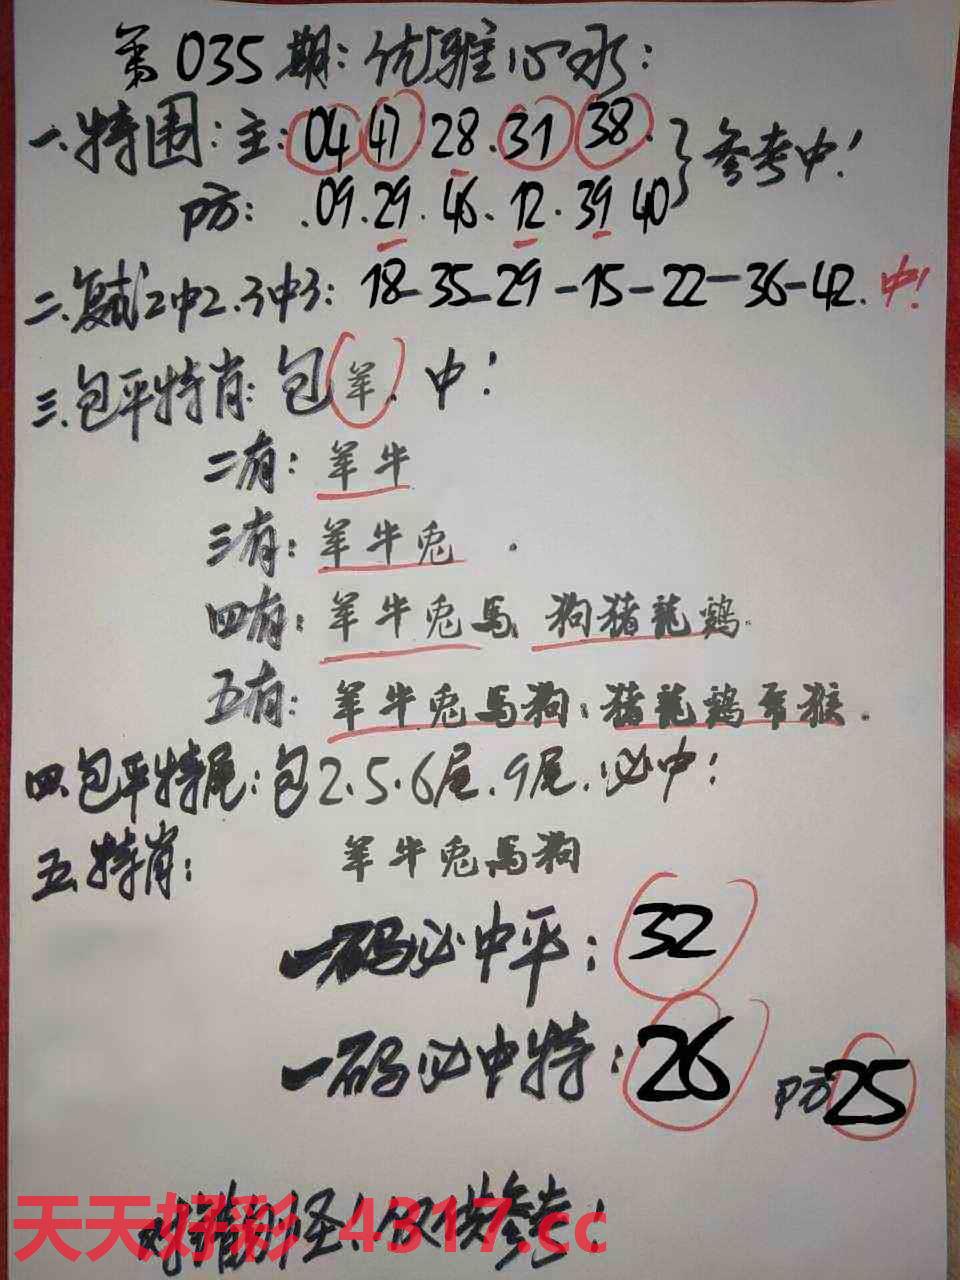 第035期:优雅心水:
一.特围:主:04 47 28.31 38.
防:.09.29.46.12.39 40
参考中!
二.复试2中2.3中3: 18-35-29-15-22-36-42.中!
三.包平特肖:包羊.中!
二有:羊牛
三有:羊牛兎.
四有:羊牛兎馬 狗猪龍鷄.
五有:羊牛兎馬狗:猪龍鷄 猴.
四.包平特尾:包2.5.6尾.9尾.必中!
五.特肖: 羊牛兎馬狗
一码必中平:32
一码必中特:26 防25
对错勿怪!仅供参考!
天天好彩 4317.cc